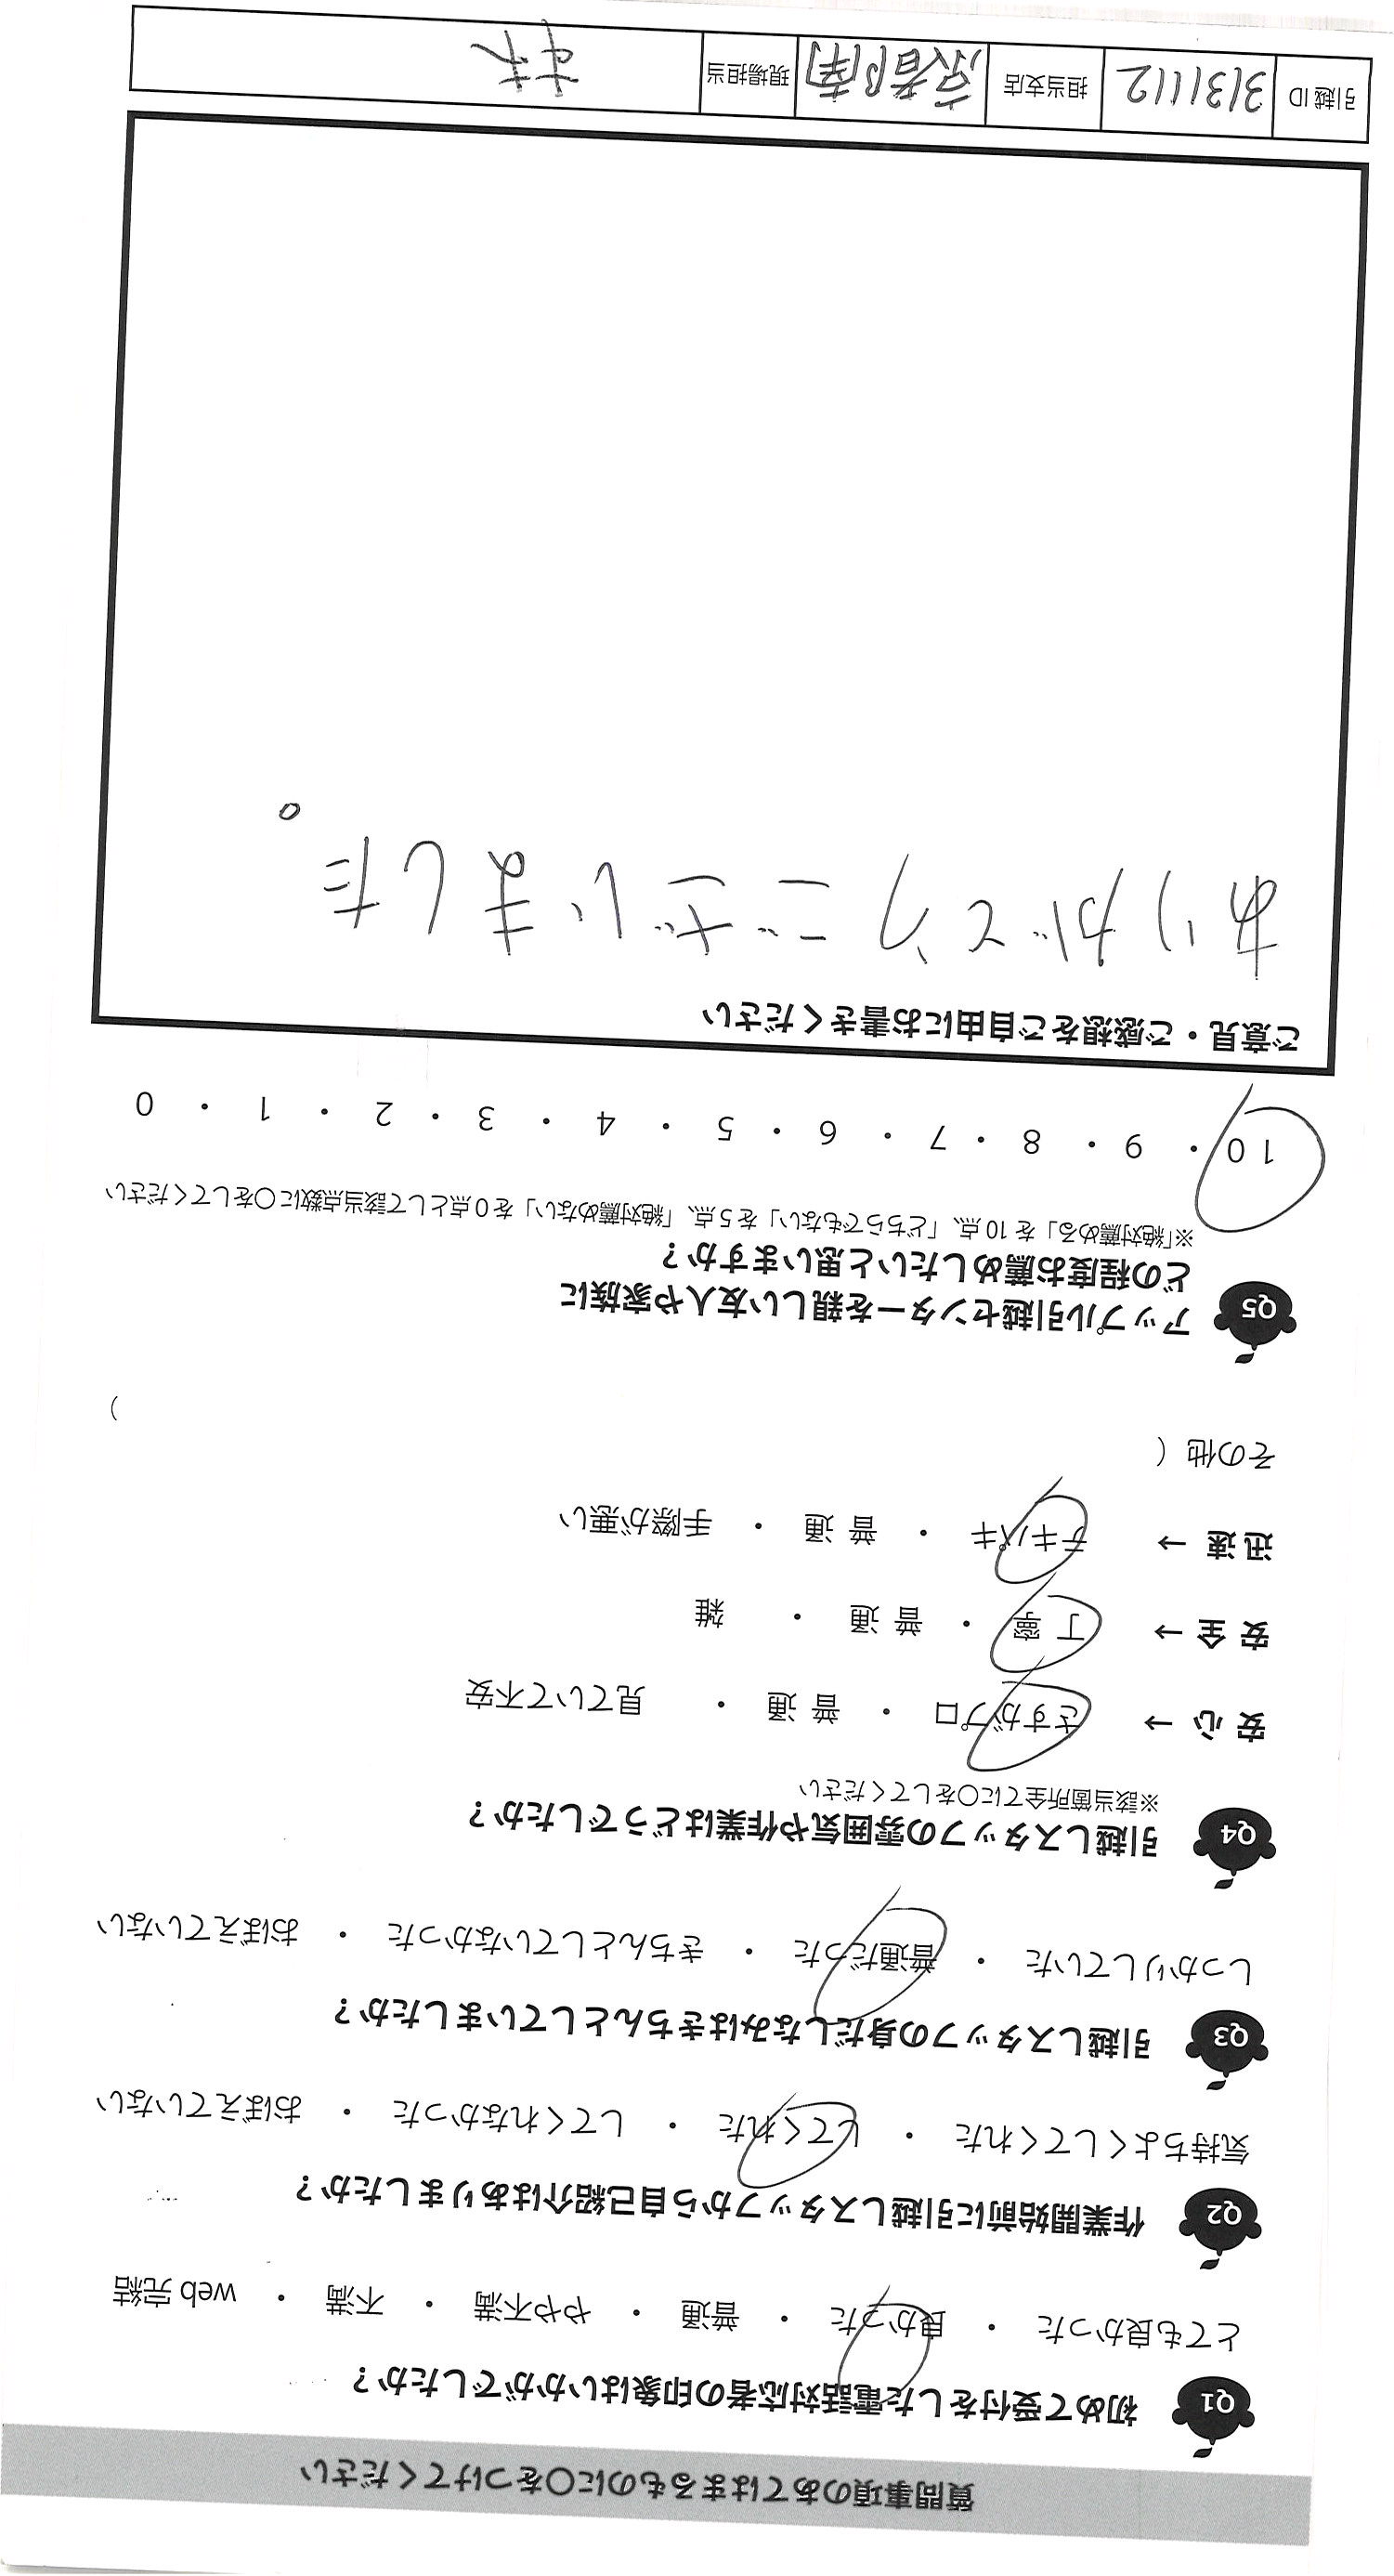 質問事項のあてはまるものに〇をつけてください
Q1 初めて受付をした電話対応者の印象はいかがでしたか？
とても良かった ・ 良かった ・ 普通 ・ やや不満 ・ 不満 ・ web 完結
Q2 作業開始前に引越しスタッフから自己紹介はありましたか？
気持ちよくしてくれた ・ してくれた ・ してくれなかった ・ おぼえていない
Q3 引越しスタッフの身だしなみはきちんとしていましたか？
しっかりしていた ・ 普通だった ・ きちんとしていなかった ・ おぼえていない
Q4 引越しスタッフの雰囲気や作業はどうでしたか？
※該当箇所全てに〇をしてください
安 心 → さすがプロ ・ 普 通 ・ 見ていて不安
安 全 → 丁 寧 ・ 普 通 ・ 雑
迅 速 → テキパキ ・ 普 通 ・ 手際が悪い
その他（ ）
Q5 アップル引越センターを親しい友人や家族に
どの程度お薦めしたいと思いますか？
※「絶対薦める」を 10 点、「どちらでもない」を 5 点、「絶対薦めない」を 0 点として該当点数に〇をしてください
10 ・ 9 ・ 8 ・ 7 ・ 6 ・ 5 ・ 4 ・ 3 ・ 2 ・ 1 ・ 0
ご意見・ご感想をご自由にお書きください
ありがとうございました。
引越 ID 3131112 担当支店 京都南 現場担当 林